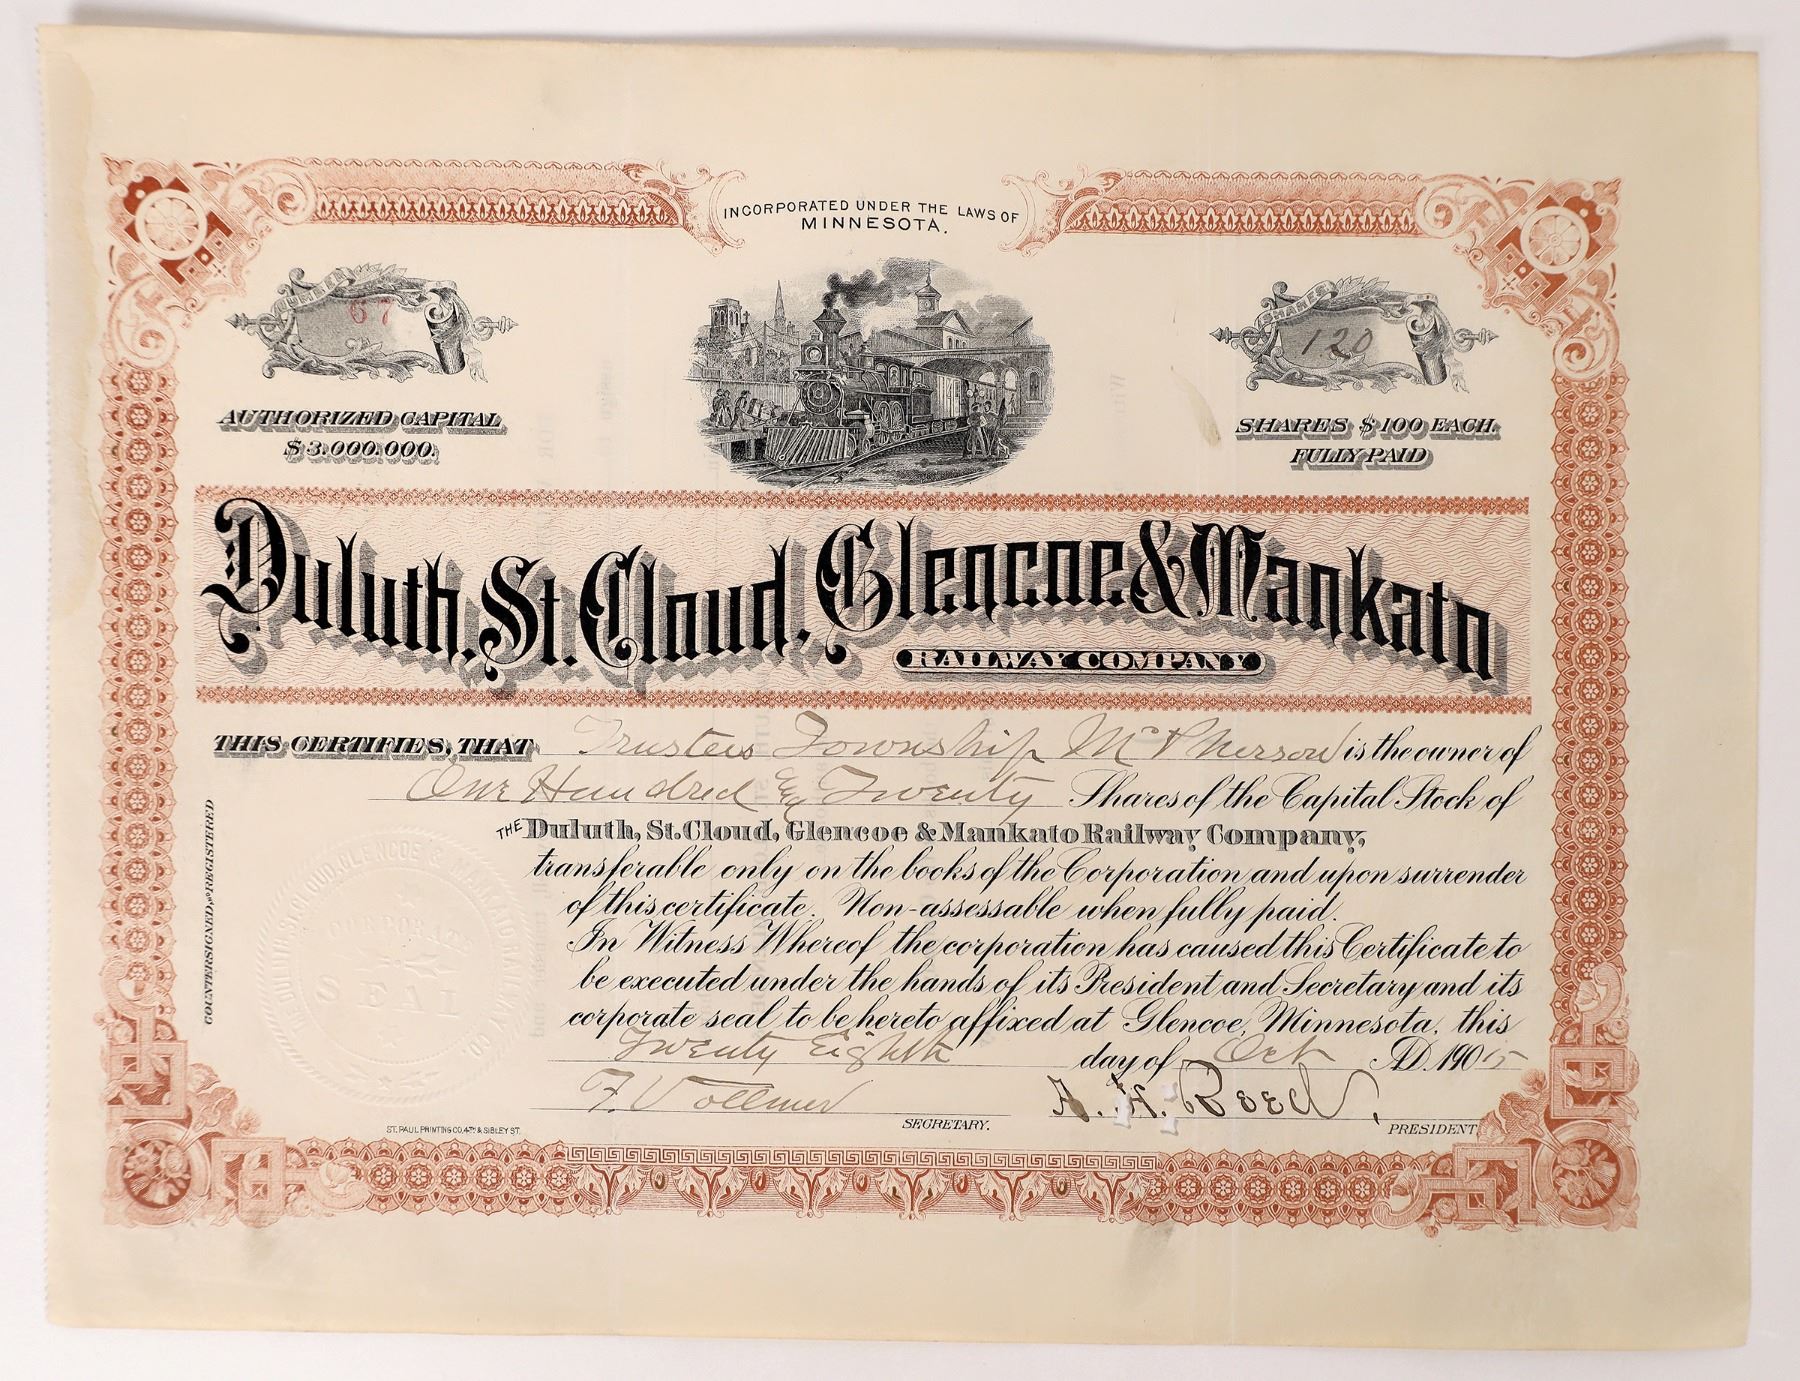 INCORPORATED UNDER THE LAWS OF
MINNESOTA.
NUMBER
67
SHARES
120
AUTHORIZED CAPITAL
$3.000.000.
SHARES $100 EACH.
FULLY PAID
Duluth, St. Cloud, Glencoe & Mankato
RAILWAY COMPANY
THIS CERTIFIES, THAT Trustees Township McPherson is the owner of
One Hundred & Twenty Shares of the Capital Stock of
THE Duluth, St. Cloud, Glencoe & Mankato Railway Company,
transferable only on the books of the Corporation and upon surrender
of this certificate. Non-assessable when fully paid.
In Witness Whereof the corporation has caused this Certificate to
be executed under the hands of its President and Secretary and its
corporate seal to be hereto affixed at Glencoe, Minnesota, this
Twenty Eighth day of Oct A.D. 1905
F. Vollmer SECRETARY.
A. H. Reed, PRESIDENT
COUNTERSIGNED AND REGISTERED
DULUTH, ST. CLOUD, GLENCOE & MANKATO RY. CO.
CORPORATE
SEAL
ST. PAUL PRINTING CO. 4TH & SIBLEY ST.